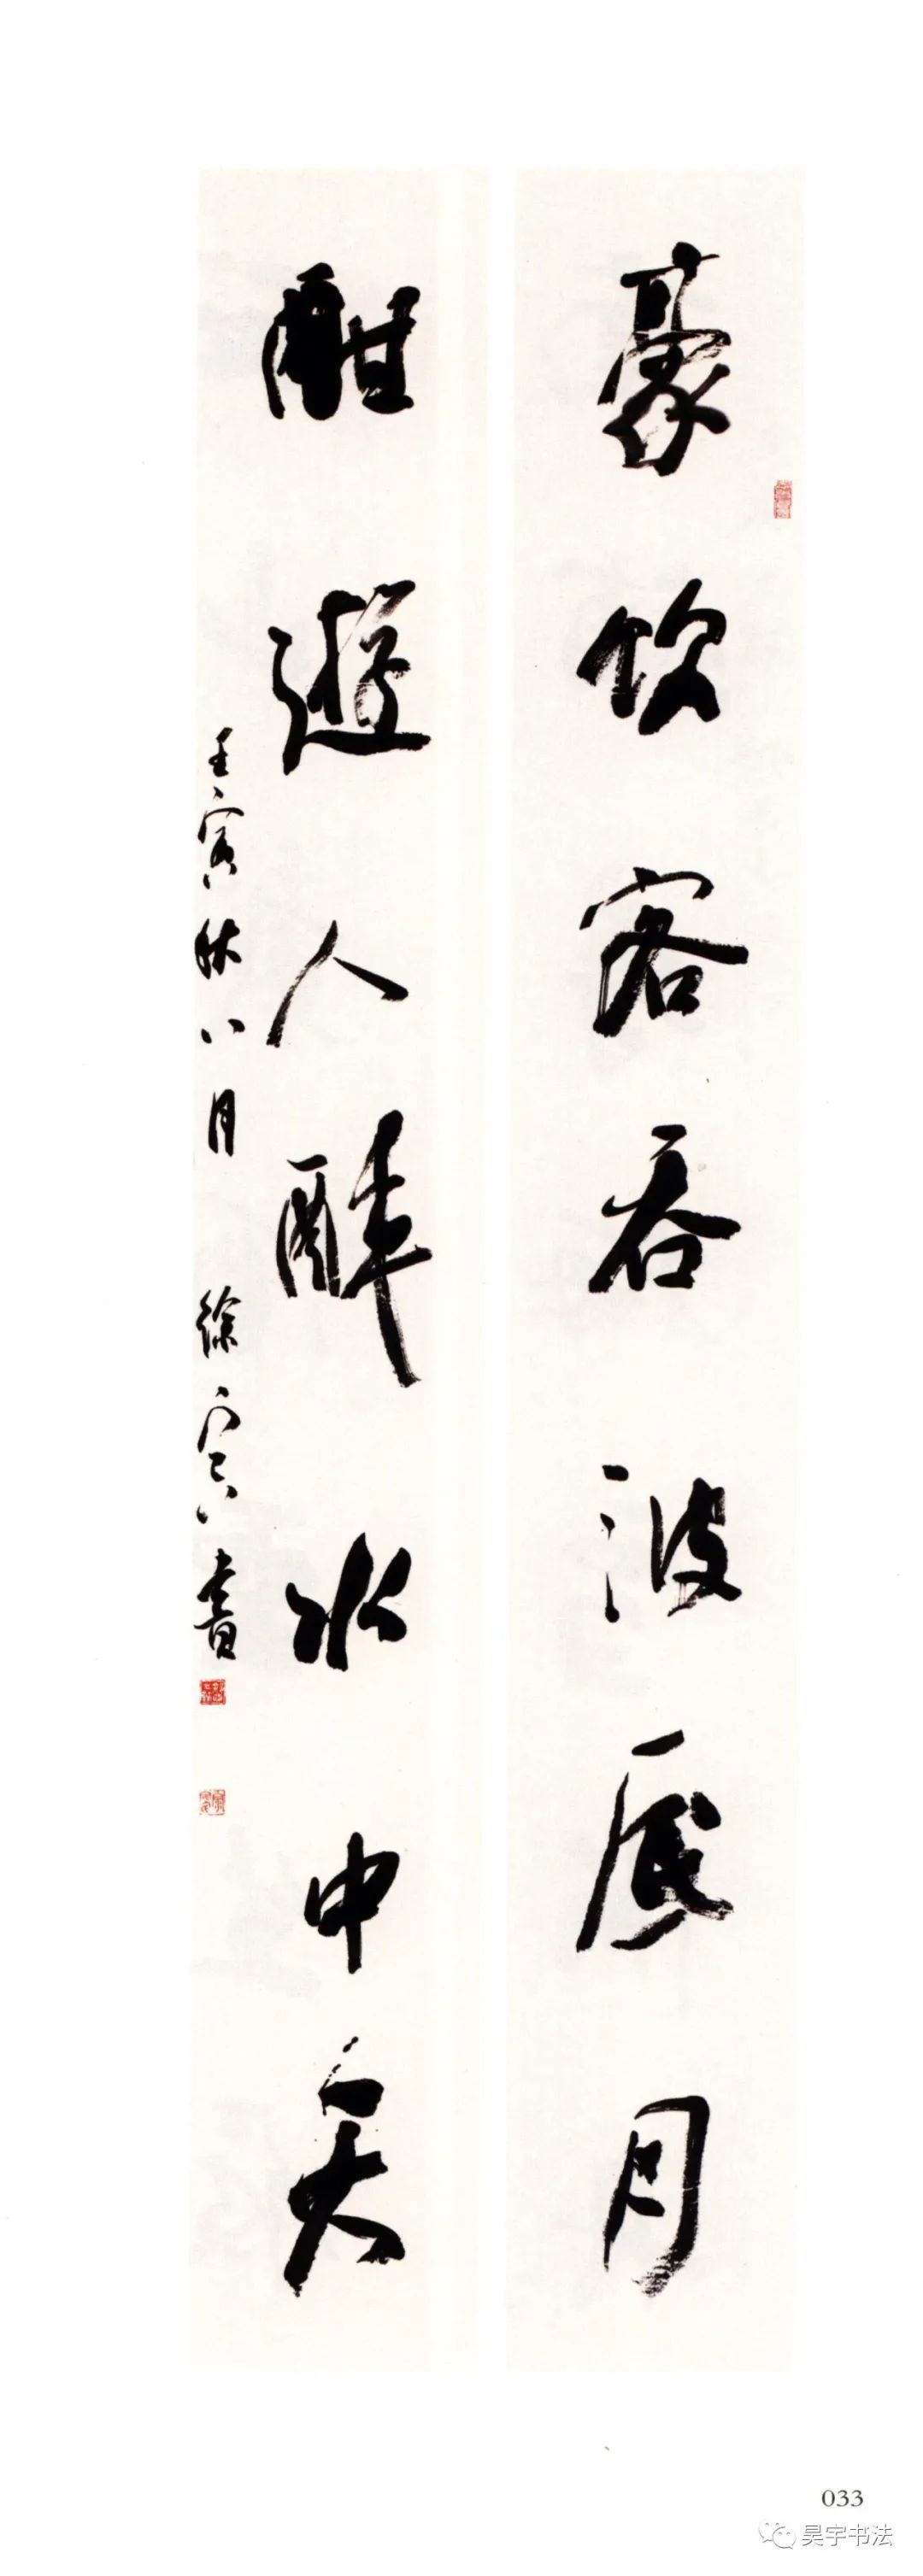 豪饮客吞波底月
酣遊人醉水中天
壬寅秋八月 徐 書
033
昊宇书法